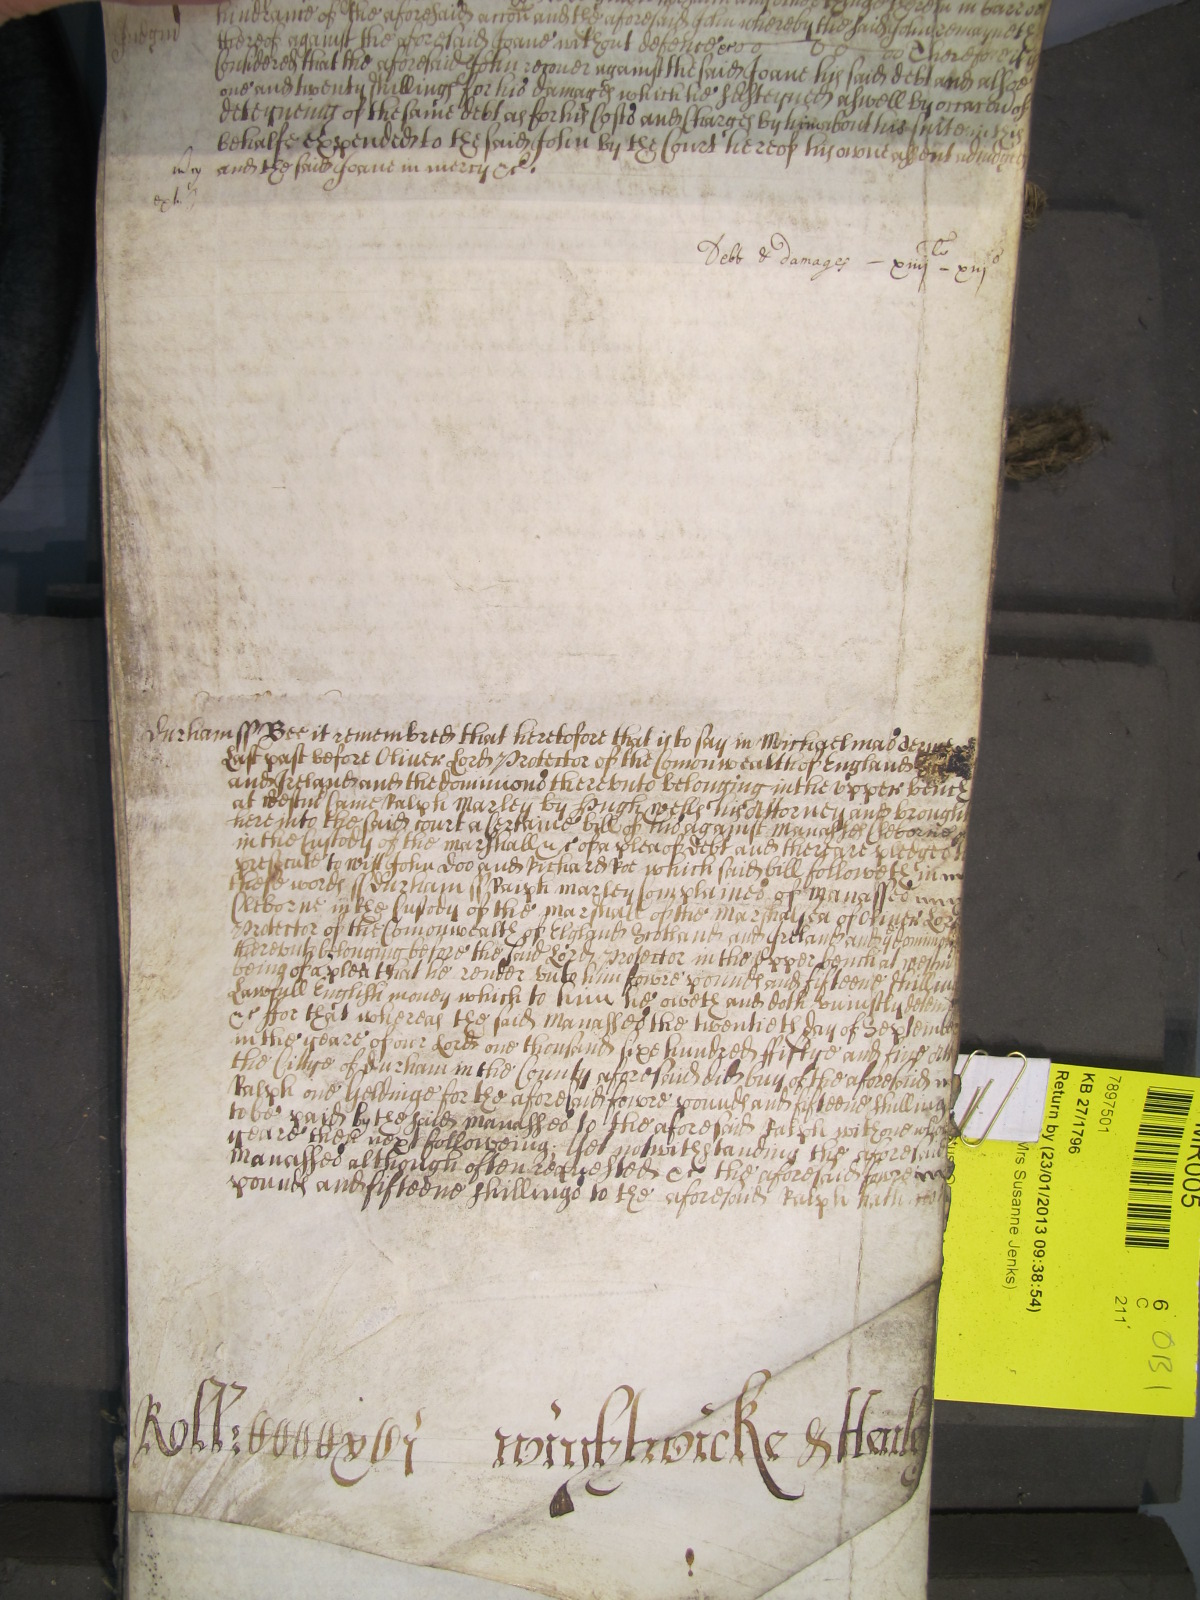 hindrance of the aforesaid accon and the aforesaid John whereby the said John remayneth
Judgmt
thereof against the aforesaid Joane without defence &c Therefore it is
Considered that the aforesaid John recover against the said Joane his said debt and alsoe
one and twenty shillings for his damages which he susteyned aswell by occacon of
deteyneing of the same debt as for his Costs and Charges by him about his suite in this
behalfe expended to the said John by the Court here of his owne assent adiudged
and the said Joane in mercy &c.
mcy
Debt & damages – xiiij li – xiij s
Durham ss Bee it remembred that heretofore that is to say in Michaelmas terme
Last past before Oliver Lord Protector of the Comonwealth of England
and Ireland and the dominions thereunto belonging in the upper bench
at Westmr Came Ralph Marley by Hugh his Attorney and brought
here into the said court a Certaine bill of his against Manasses Cleborne
in the Custody of the marshall &c of a plea of debt and there are pledges
to witt John Doo and Richard Roe which said bill followeth in
these words ss Durham ss Ralph marley Complaines of Manasses
Cleborne in the Custody of the marshall of the Marshalsea of Oliver Lord
Protector of the Comonwealth of England Scotland and Ireland and ye dominions
thereunto belonging before the said Lord Protector in the upper bench at Westmr
being of a plea that he render unto him fowre pounds and fifteene shillings
Lawfull English money which to him he oweth and doth uniustly deteine
&c ffor that whereas the said Manasses the twentieth day of September
in the yeare of our Lord one thousand sixe hundred fiftye and five att
the Cittye of Durham in the County aforesaid did buy of the aforesaid
Ralph one Geldinge for the aforesaid fowre pounds and fifteene shillings
to be paid by the said Manasses to the aforesaid Ralph within one whole
yeare then next followeing. Yet notwithstanding the aforesaid
Manasses although often requested &c the aforesaid fowre
pounds and fifteene shillings to the aforesaid Ralph hath not
Roll:
wightwicke & Henly
7897501
KB 27/1796
Return by (23/01/2013 09:38:54)
Mrs Susanne Jenks)
MR005
6
C
211
OB1